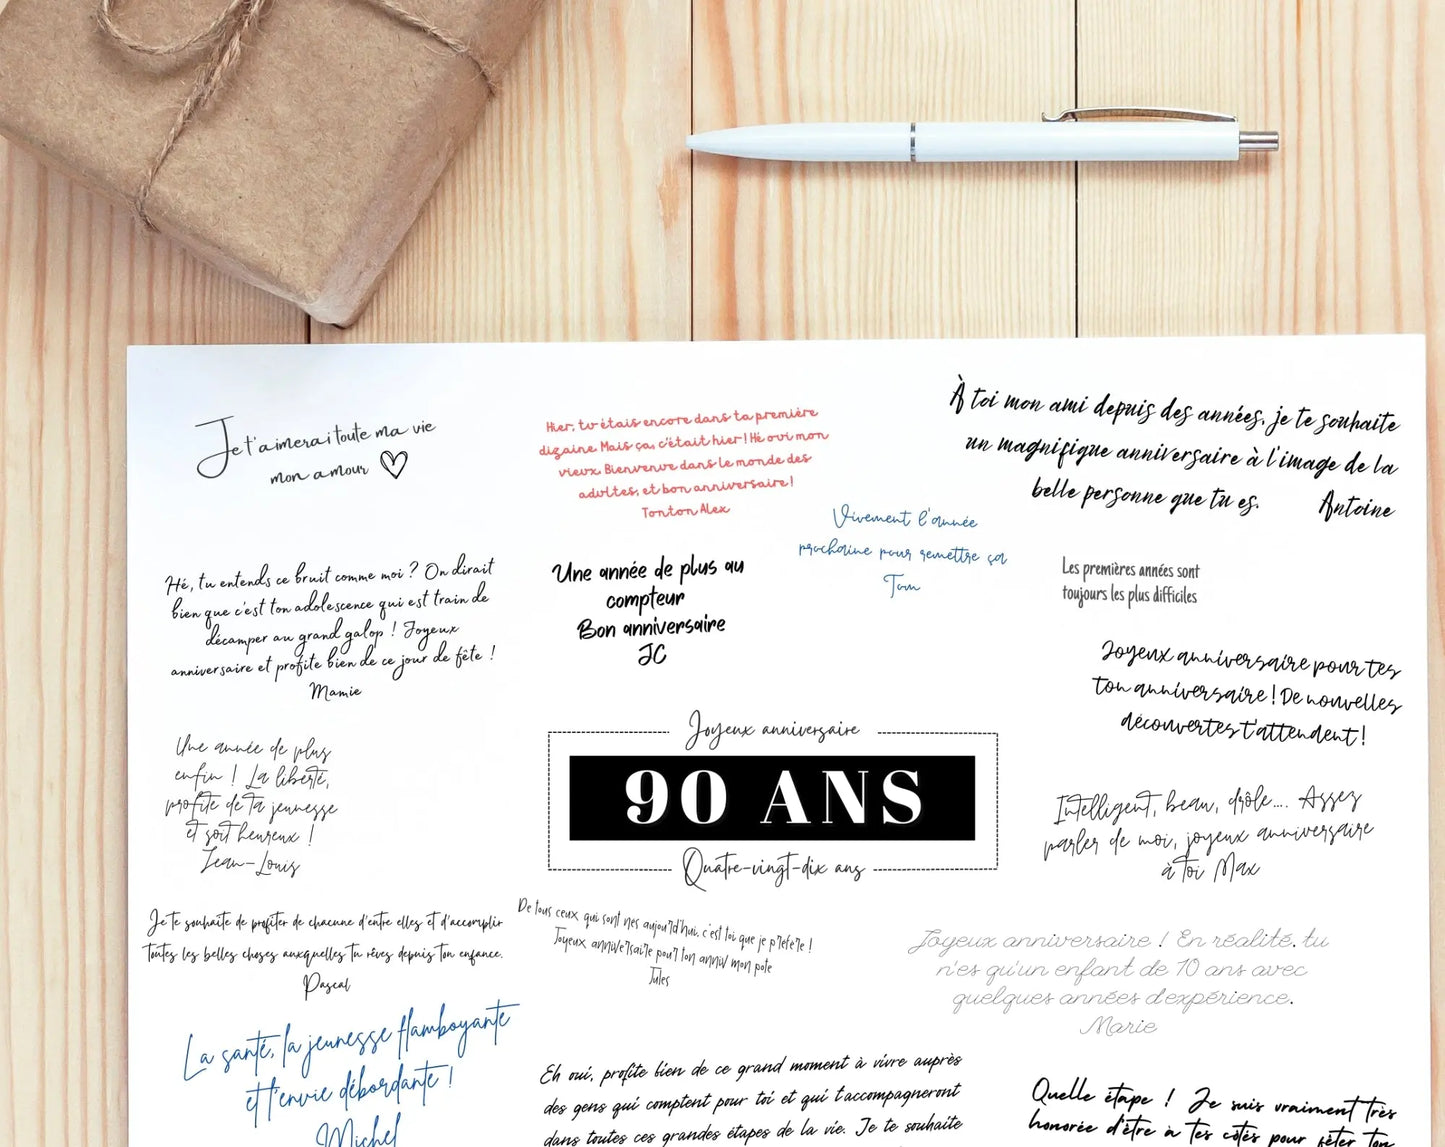 Je t'aimerai toute ma vie
mon amour
Hier, tu étais encore dans ta première
dizaine. Mais ça, c'était hier ! Hé oui mon
vieux. Bienvenue dans le monde des
adultes, et bon anniversaire !
Tonton Alex
À toi mon ami depuis des années, je te souhaite
un magnifique anniversaire à l'image de la
belle personne que tu es.
Antoine
Vivement l'année
prochaine pour remettre ça
Tom
Hé, tu entends ce bruit comme moi ? On dirait
bien que c'est ton adolescence qui est train de
décamper au grand galop ! Joyeux
anniversaire et profite bien de ce jour de fête !
Mamie
Une année de plus au
compteur
Bon anniversaire
JC
Les premières années sont
toujours les plus difficiles
Joyeux anniversaire pour tes
ton anniversaire ! De nouvelles
découvertes t'attendent !
Une année de plus
enfin ! La liberté,
profite de ta jeunesse
et soit heureux !
Jean-Louis
Joyeux anniversaire
90 ANS
Quatre-vingt-dix ans
Intelligent, beau, drôle.... Assez
parler de moi, joyeux anniversaire
à toi Max
Je te souhaite de profiter de chacune d'entre elles et d'accomplir
toutes les belles choses auxquelles tu rêves depuis ton enfance.
Pascal
De tous ceux qui sont nes aujourd'hui, c'est toi que je préfère !
Joyeux anniversaire pour ton anniv mon pote
Jules
Joyeux anniversaire ! En réalité, tu
n'es qu'un enfant de 10 ans avec
quelques années d'expérience.
Marie
La santé, la jeunesse flamboyante
et l'envie débordante !
Michel
Eh oui, profite bien de ce grand moment à vivre auprès
des gens qui comptent pour toi et qui t'accompagneront
dans toutes ces grandes étapes de la vie. Je te souhaite
Quelle étape ! Je suis vraiment très
honorée d'être à tes côtés pour fêter ton